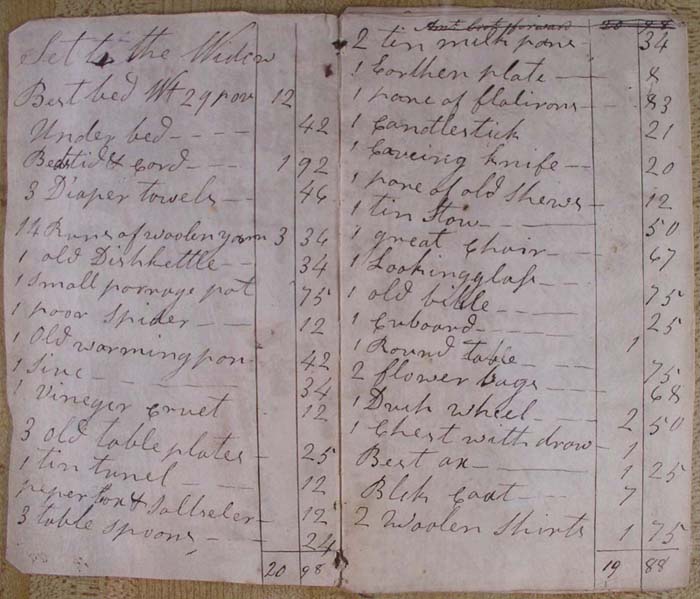 Set to the Widow
Best bed Wt 29 pou 12
Under bed - - - - 42
Bedstid & Cord - - - 1 92
3 Diaper towels - - 46
14 Runs of woolen yarn 3 36
1 old Dishkettle - - 34
1 Small porrage pot 75
1 poor Spider - - - 12
1 Old warmingpan 42
1 Sive - - - - 34
1 Vineger Cruet 12
3 old table plates - 25
1 tin tunel - - - 12
peper box & Saltseler - 12
3 table Spoons - - 24
20 98
Amt brot forward 20 98
2 tin milk pans - 34
1 Earthen plate - - 8
1 pare of flatirons - - 83
1 Candlestick 21
1 Carving knife - - 20
1 pare of old Shews - 12
1 tin Stow - - - 50
1 great Chair - - 67
1 Lookingglass - -
1 old bible - - - 75
1 Cuboard - - - 25
1 Round table - - 1
2 flower bags - - - 75
1 Duch wheel - - - 2 68
1 Chest with draw - 1 50
Best ax - - - 1 25
Blck Coat - - - 7
2 Woolen Shirts 1 75
19 88